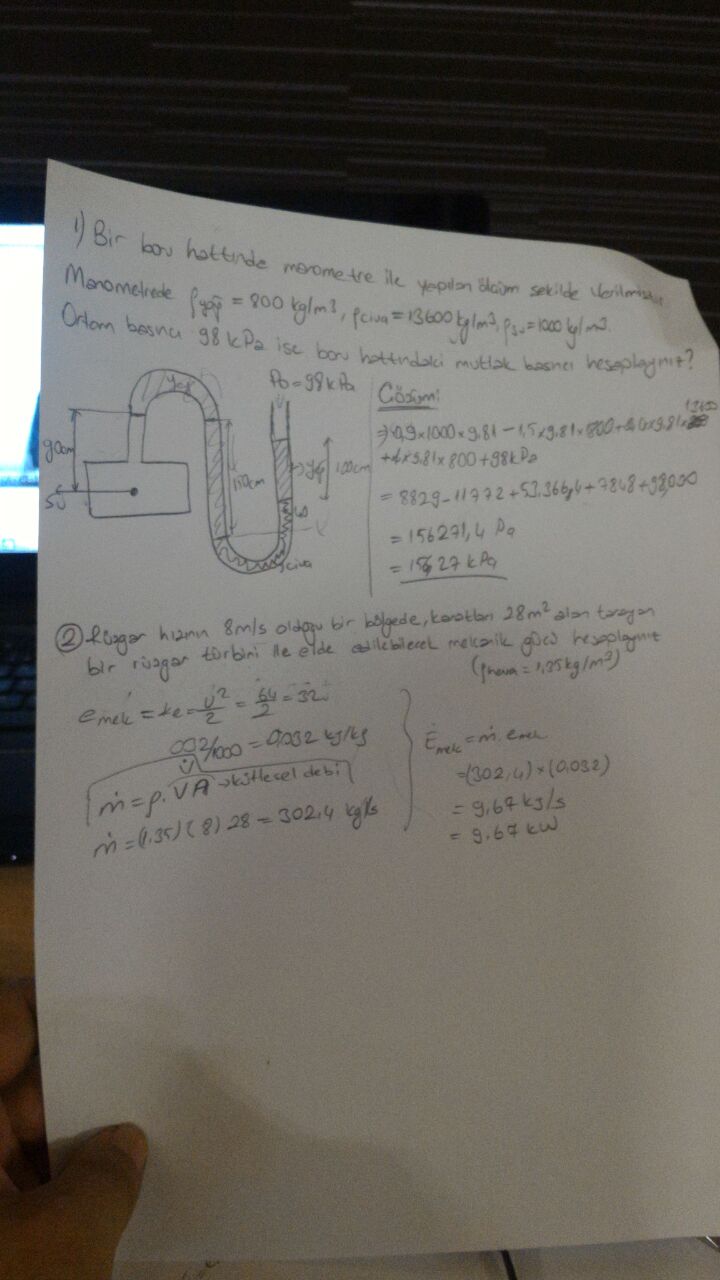 1) Bir boru hattında manometre ile yapılan ölçüm şekilde verilmiştir.
Manometrede ρyağ = 800 kg/m³, ρciva = 13600 kg/m³, ρsu = 1000 kg/m³.
Ortam basıncı 98 kPa ise boru hattındaki mutlak basıncı hesaplayınız?
yağ
P0 = 98 kPa
90cm
su
150cm
yağ
100cm
40
ρciva
Çözüm:
⇒ 0,9x1000x9.81 - 1,5x9.81x800 + 0,4x9.81x 13600
+1x9.81x800 + 98kPa
= 8829 - 11772 + 53.366,4 + 7848 + 98,000
= 156271,4 Pa
= 156,27 kPa
② Rüzgar hızının 8m/s olduğu bir bölgede, kanatları 28m² alan tarayan
bir rüzgar türbini ile elde edilebilecek mekanik gücü hesaplayınız
(ρhava = 1,35 kg/m³)
emek = ke = V²/2 = 64/2 = 32
/1000 = 0,032 kj/kg
V̇
ṁ = ρ.VA → kütlesel debi
ṁ = (1.35)(8) 28 = 302,4 kg/s
Ėmek = ṁ.emek
= (302,4) x (0.032)
= 9,67 kj/s
= 9.67 kW